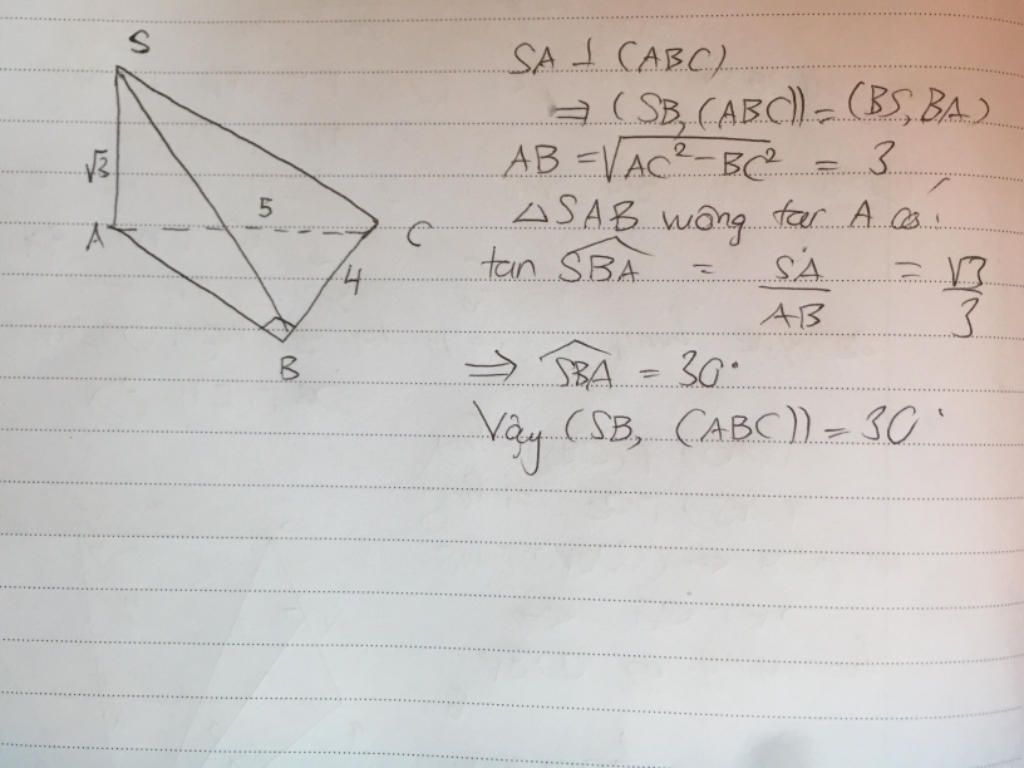 S
√3
5
A
C
4
B
SA ⊥ (ABC)
⇒ (SB, (ABC)) = (BS, BA)
AB = √AC² - BC² = 3
△SAB vuông tại A có:
tan SBA = SA/AB = √3/3
⇒ SBA = 30°
Vậy (SB, (ABC)) = 30°